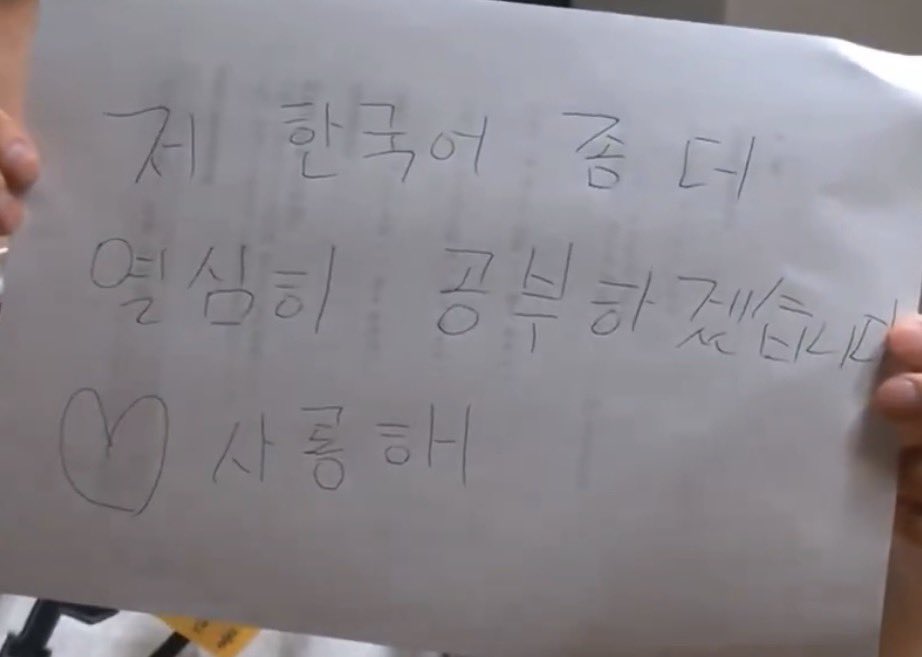 제 한국어 좀 더
열심히 공부하겠습니다
♡ 사룡해